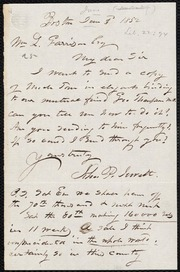 Boston Jan 8 1852
Wm L. Garrison Esq
My dear Sir
I want to send a copy
of Uncle Tom in elegant binding
to our mutual friend Geo Thompson can
you tell me how to do it?
Are you sending to him frequently?
So could I send through you?
Yours truly
John P. Jewett
P.S. Sat Eve we shall have off
the 70th thousand
the 80th making 160000 vols
in 11 weeks, a sale I think
unprecedented in the whole world.
certainly so in this country